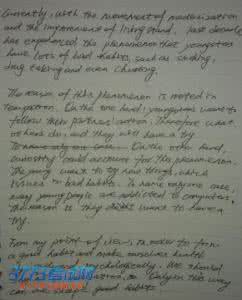 Currently, with the movement of modernization
and the improvement of living stand, last decade
has experienced the phenomenon that youngsters
have lots of bad habits, such as smoking,
drug taking and even cheating.
The reason of this phenomenon is rooted in
temptation. On the one hand, youngsters want to
follow their partners' action. Therefore what
others do, and they will have a try
On the other hand,
curiosity could account for the phenomenon.
The young want to try new things, which
issues to bad habits. To name anyone once,
many young people are addicted to computers,
the reason is they want to have a
try.
From my point of view, in order to form
a good habit and make ourselves health
psychologically. We should
Only in this way
can good habits